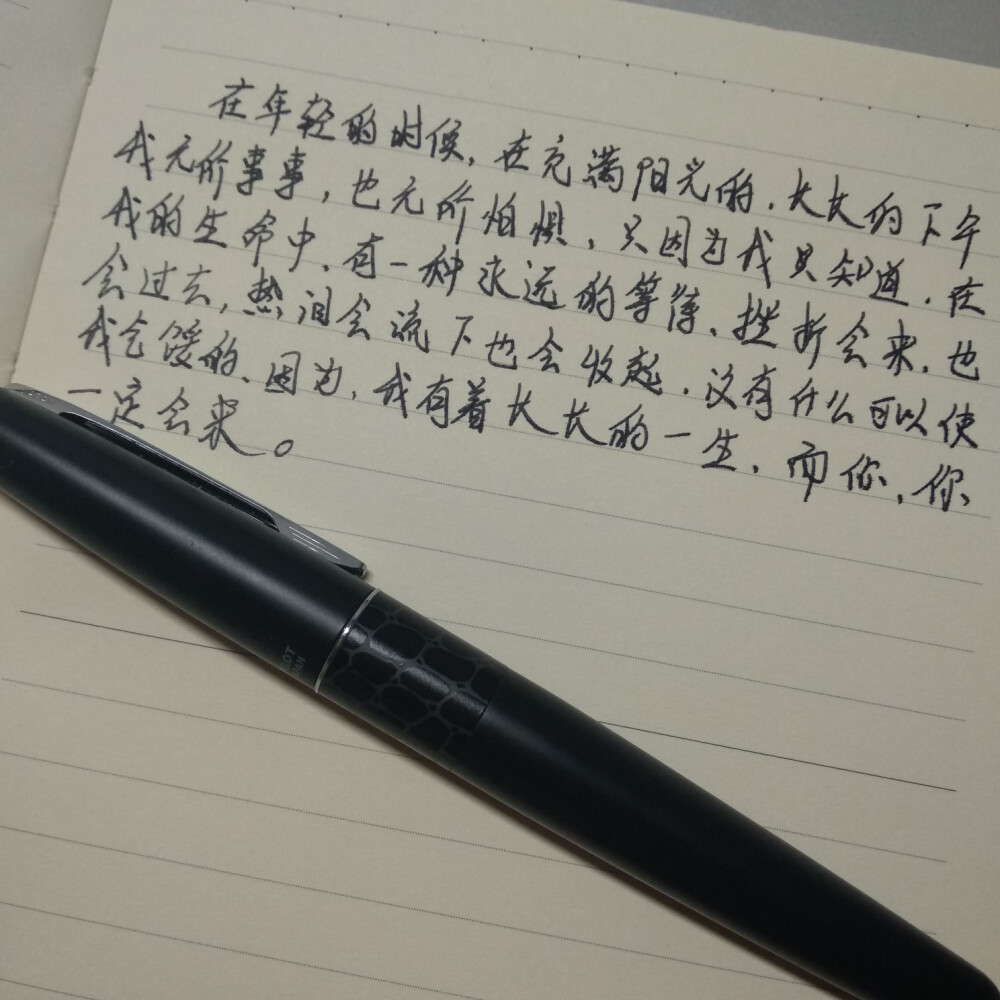 在年轻的时候，在充满阳光的，长长的下午
我无所事事，也无所怕惧，只因为我只知道，在
我的生命中，有一种永远的等待，挫折会来，也
会过去，热泪会流下也会收起，没有什么可以使
我气馁的，因为，我有着长长的一生，而你，你
一定会来。